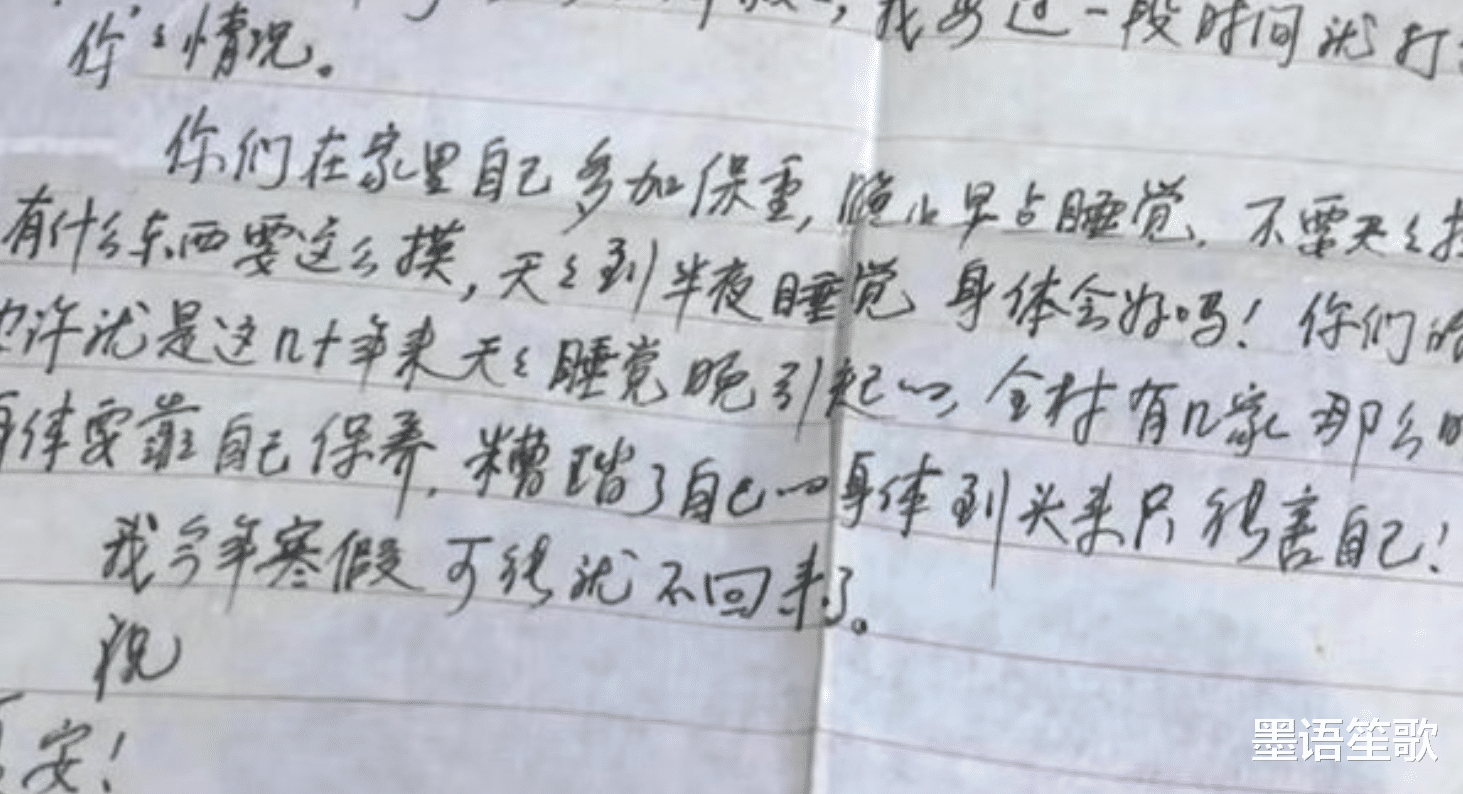 我每过一段时间就打
你々情况。
你们在家里自己多加保重,晚上早点睡觉.不要天々摸
有什么东西要这么摸,天々到半夜睡觉 身体会好吗!你们的
也许就是这几十年来天々睡觉晚引起的,全村有几家那么晚
身体要靠自己保养.糟踏了自己的身体到头来只能害自己!
我今年寒假可能就不回来了。
祝
安!
墨语笙歌